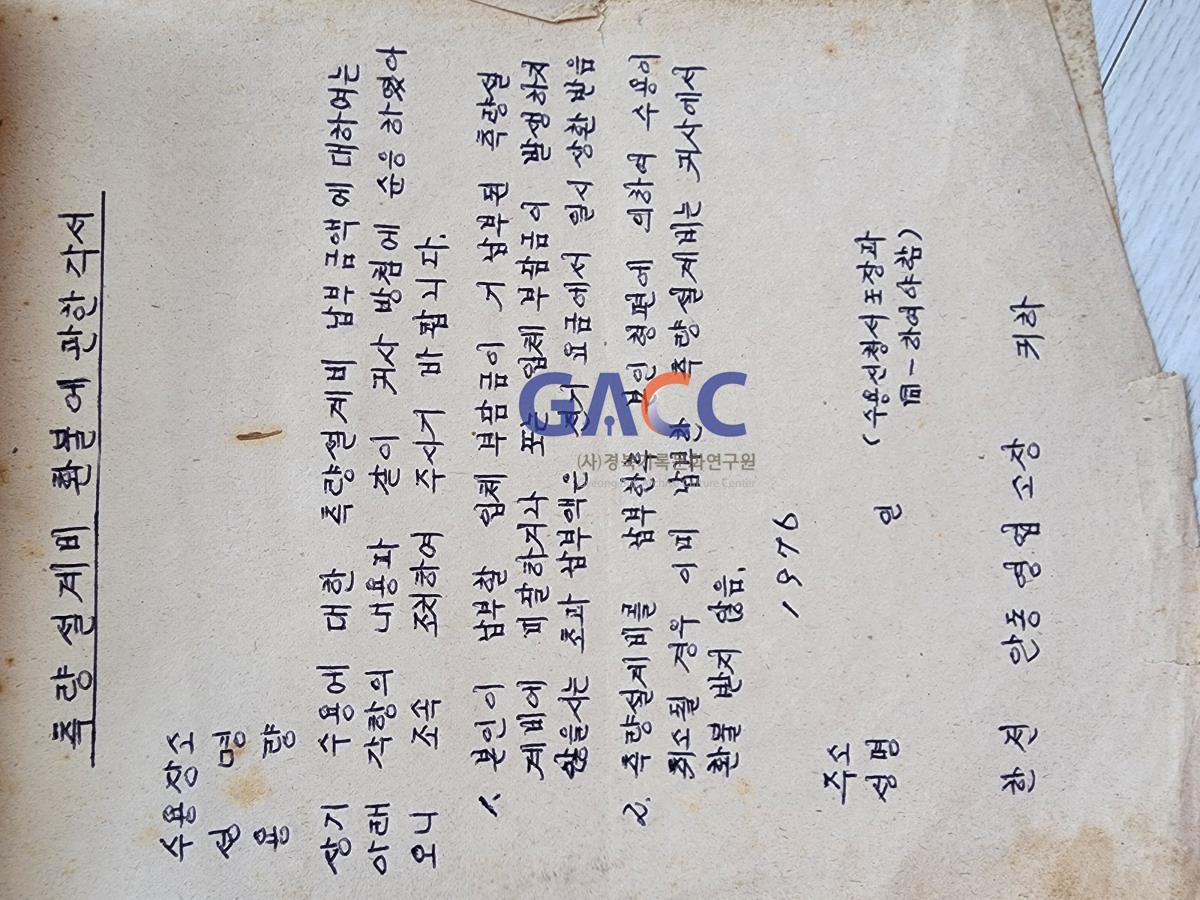 측량설계비 환불에 관한 각서
수용장소
성 명
용 량
상기 수용에 대한 측량설계비 납부 금액에 대하여는
아래 각항의 내용과 같이 귀사 방침에 순응 하겠아
오니 조속 조치하여 주시기 바랍니다.
1. 본인이 납부할 입체 부담금이 기 납부된 측량설
계비에 미달하거나 또는 입체 부담금이 발생하지
않을시는 초과 납부액은 전기 요금에서 일시 상환 받음
2. 측량설계비를 납부한후 본인 형편에 의하여 수용이
취소될 경우 이미 납부한 측량설계비는 귀사에서
환불 받지 않음.
1976
주소
성명 인 (수용신청서 도장과
同一하여야함)
한전 안동 영업소장 귀하
GACC
(사)경북기록문화연구원